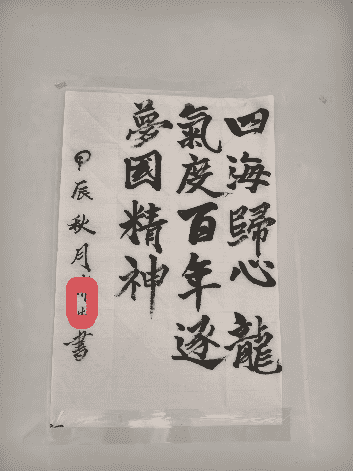 四海歸心龍
氣度百年逐
夢國精神
甲辰秋月書